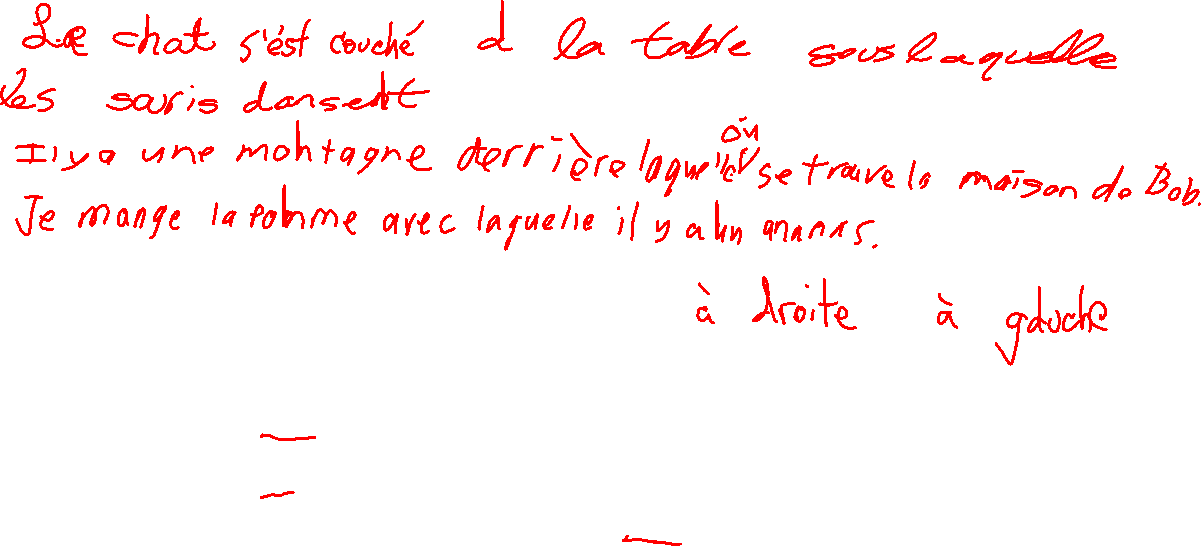 Le chat s'ést couché à la table sous laquelle
Les souris dansent
Il y a une montagne derrière laquelle où se trouve la maison de Bob.
Je mange la pomme avec laquelle il y a un ananas.
à droite à gauche